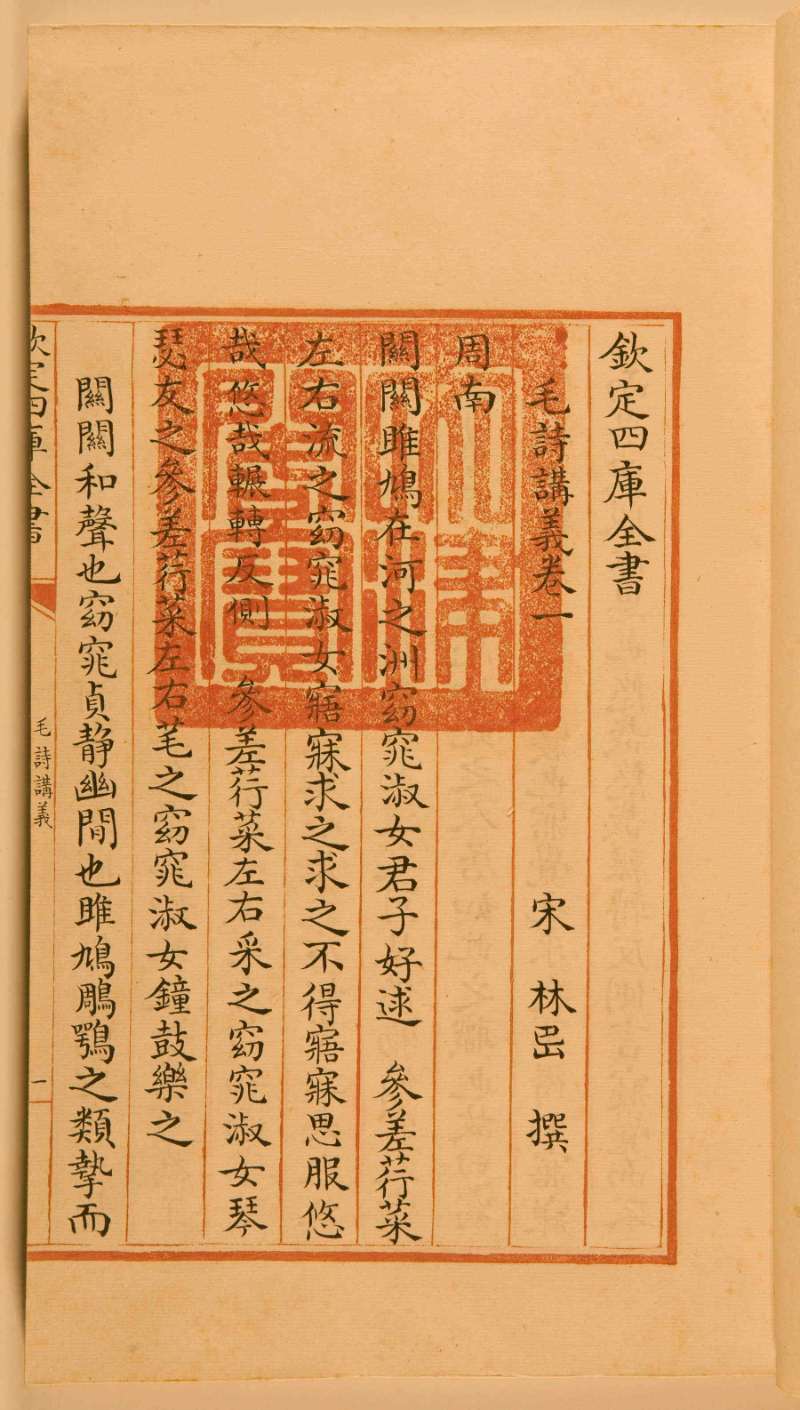 欽定四庫全書
毛詩講義卷一 宋 林岊 撰
周南
關關雎鳩在河之洲窈窕淑女君子好逑 參差荇菜
左右流之窈窕淑女寤寐求之求之不得寤寐思服悠
哉悠哉輾轉反側 參差荇菜左右采之窈窕淑女琴
瑟友之參差荇菜左右芼之窈窕淑女鐘鼓樂之
關關和聲也窈窕貞静幽閒也雎鳩鵰鶚之類摯而
欽定四庫全書
毛詩講義
一
文津閣寶